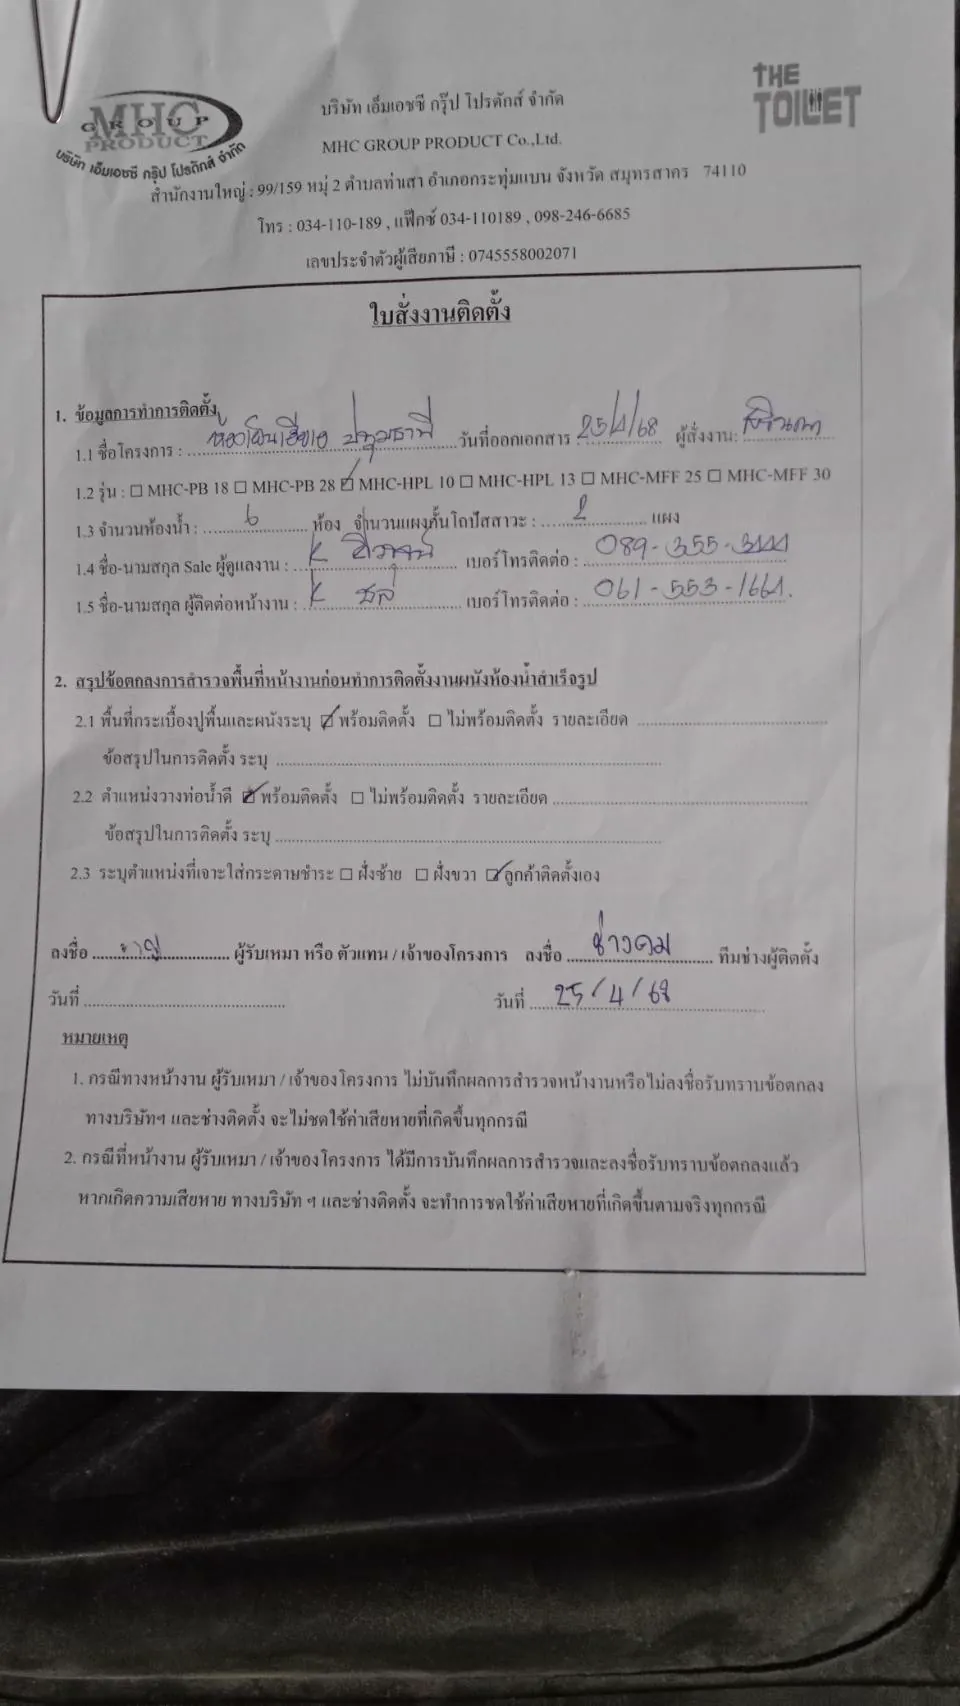 MHC
GROUP
PRODUCT
บริษัท เอ็มเอชซี กรุ๊ป โปรดักส์ จำกัด
THE
TOILET
บริษัท เอ็มเอชซี กรุ๊ป โปรดักส์ จำกัด
MHC GROUP PRODUCT Co.,Ltd.
สำนักงานใหญ่ : 99/159 หมู่ 2 ตำบลท่าเสา อำเภอกระทุ่มแบน จังหวัด สมุทรสาคร 74110
โทร : 034-110-189 , แฟ๊กซ์ 034-110189 , 098-246-6685
เลขประจำตัวผู้เสียภาษี : 0745558002071
ใบสั่งงานติดตั้ง
1. ข้อมูลการทำการติดตั้ง
1.1 ชื่อโครงการ : ปทุมธานี วันที่ออกเอกสาร 25/4/68 ผู้สั่งงาน:
1.2 รุ่น : ☐ MHC-PB 18 ☐ MHC-PB 28 ☑ MHC-HPL 10 ☐ MHC-HPL 13 ☐ MHC-MFF 25 ☐ MHC-MFF 30
1.3 จำนวนห้องน้ำ : 6 ห้อง จำนวนแผงกั้นโถปัสสาวะ : 2 แผง
1.4 ชื่อ-นามสกุล Sale ผู้ดูแลงาน : K เบอร์โทรติดต่อ : 089-355-3444
1.5 ชื่อ-นามสกุล ผู้ติดต่อหน้างาน : K ชล เบอร์โทรติดต่อ : 061-553-1664
2. สรุปข้อตกลงการสำรวจพื้นที่หน้างานก่อนทำการติดตั้งงานผนังห้องน้ำสำเร็จรูป
2.1 พื้นที่กระเบื้องปูพื้นและผนังระบุ ☑ พร้อมติดตั้ง ☐ ไม่พร้อมติดตั้ง รายละเอียด
ข้อสรุปในการติดตั้ง ระบุ
2.2 ตำแหน่งวางท่อน้ำดี ☑ พร้อมติดตั้ง ☐ ไม่พร้อมติดตั้ง รายละเอียด
ข้อสรุปในการติดตั้ง ระบุ
2.3 ระบุตำแหน่งที่เจาะใส่กระดาษชำระ ☐ ฝั่งซ้าย ☐ ฝั่งขวา ☑ ลูกค้าติดตั้งเอง
ลงชื่อ ผู้รับเหมา หรือ ตัวแทน / เจ้าของโครงการ ลงชื่อ ช่างคม ทีมช่างผู้ติดตั้ง
วันที่ วันที่ 25/4/68
หมายเหตุ
1. กรณีทางหน้างาน ผู้รับเหมา / เจ้าของโครงการ ไม่บันทึกผลการสำรวจหน้างานหรือไม่ลงชื่อรับทราบข้อตกลง
ทางบริษัทฯ และช่างติดตั้ง จะไม่ชดใช้ค่าเสียหายที่เกิดขึ้นทุกกรณี
2. กรณีที่หน้างาน ผู้รับเหมา / เจ้าของโครงการ ได้มีการบันทึกผลการสำรวจและลงชื่อรับทราบข้อตกลงแล้ว
หากเกิดความเสียหาย ทางบริษัท ฯ และช่างติดตั้ง จะทำการชดใช้ค่าเสียหายที่เกิดขึ้นตามจริงทุกกรณี